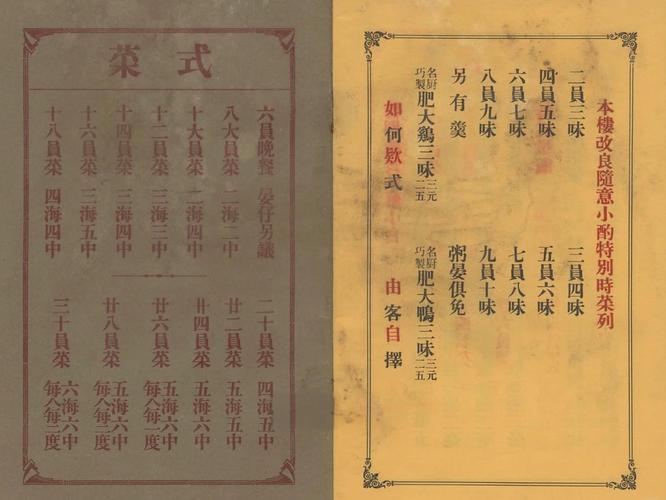 本樓改良隨意小酌特別時菜列
二員三味
三員四味
四員五味
五員六味
六員七味
七員八味
八員九味
九員十味
另有羹
粥晏俱免
名厨巧製肥大鷄三味三元二五
名厨巧製肥大鴨三味三元二五
如何欵式 由客自擇
菜式
六員晚餐 晏仔另議
八大員菜 二海二中
十大員菜 二海四中
十二員菜 三海三中
十四員菜 三海四中
十六員菜 三海五中
十八員菜 四海四中
二十員菜 四海五中
廿二員菜 五海五中
廿四員菜 五海六中
廿六員菜 五海六中 每人每一度
廿八員菜 五海六中 每人每二度
三十員菜 六海六中 每人每二度